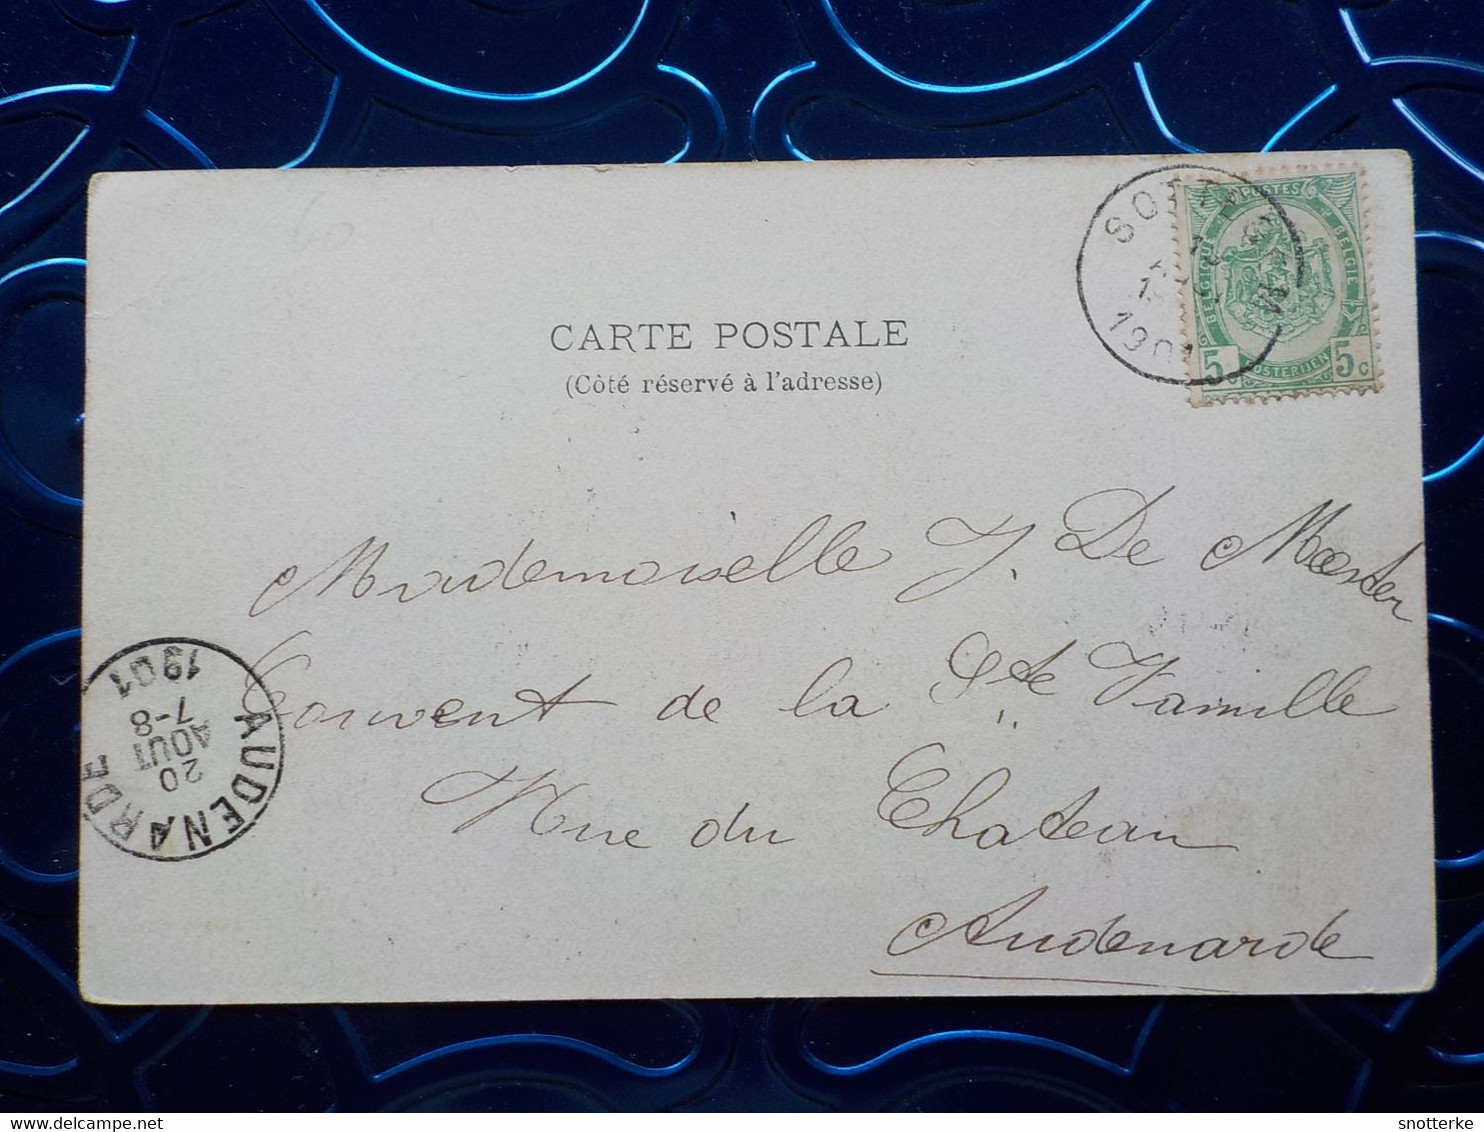 60
CARTE POSTALE
(Côté réservé à l'adresse)
1901
POSTES
BELGIQUE
BELGIË
POSTERIJEN
5 C
5 C
Mademoiselle J. De Meester
Couvent de la Ste Famille
Rue du Chateau
Audenarde
AUDENARDE
20
AOUT
7-8
1901
snotterke